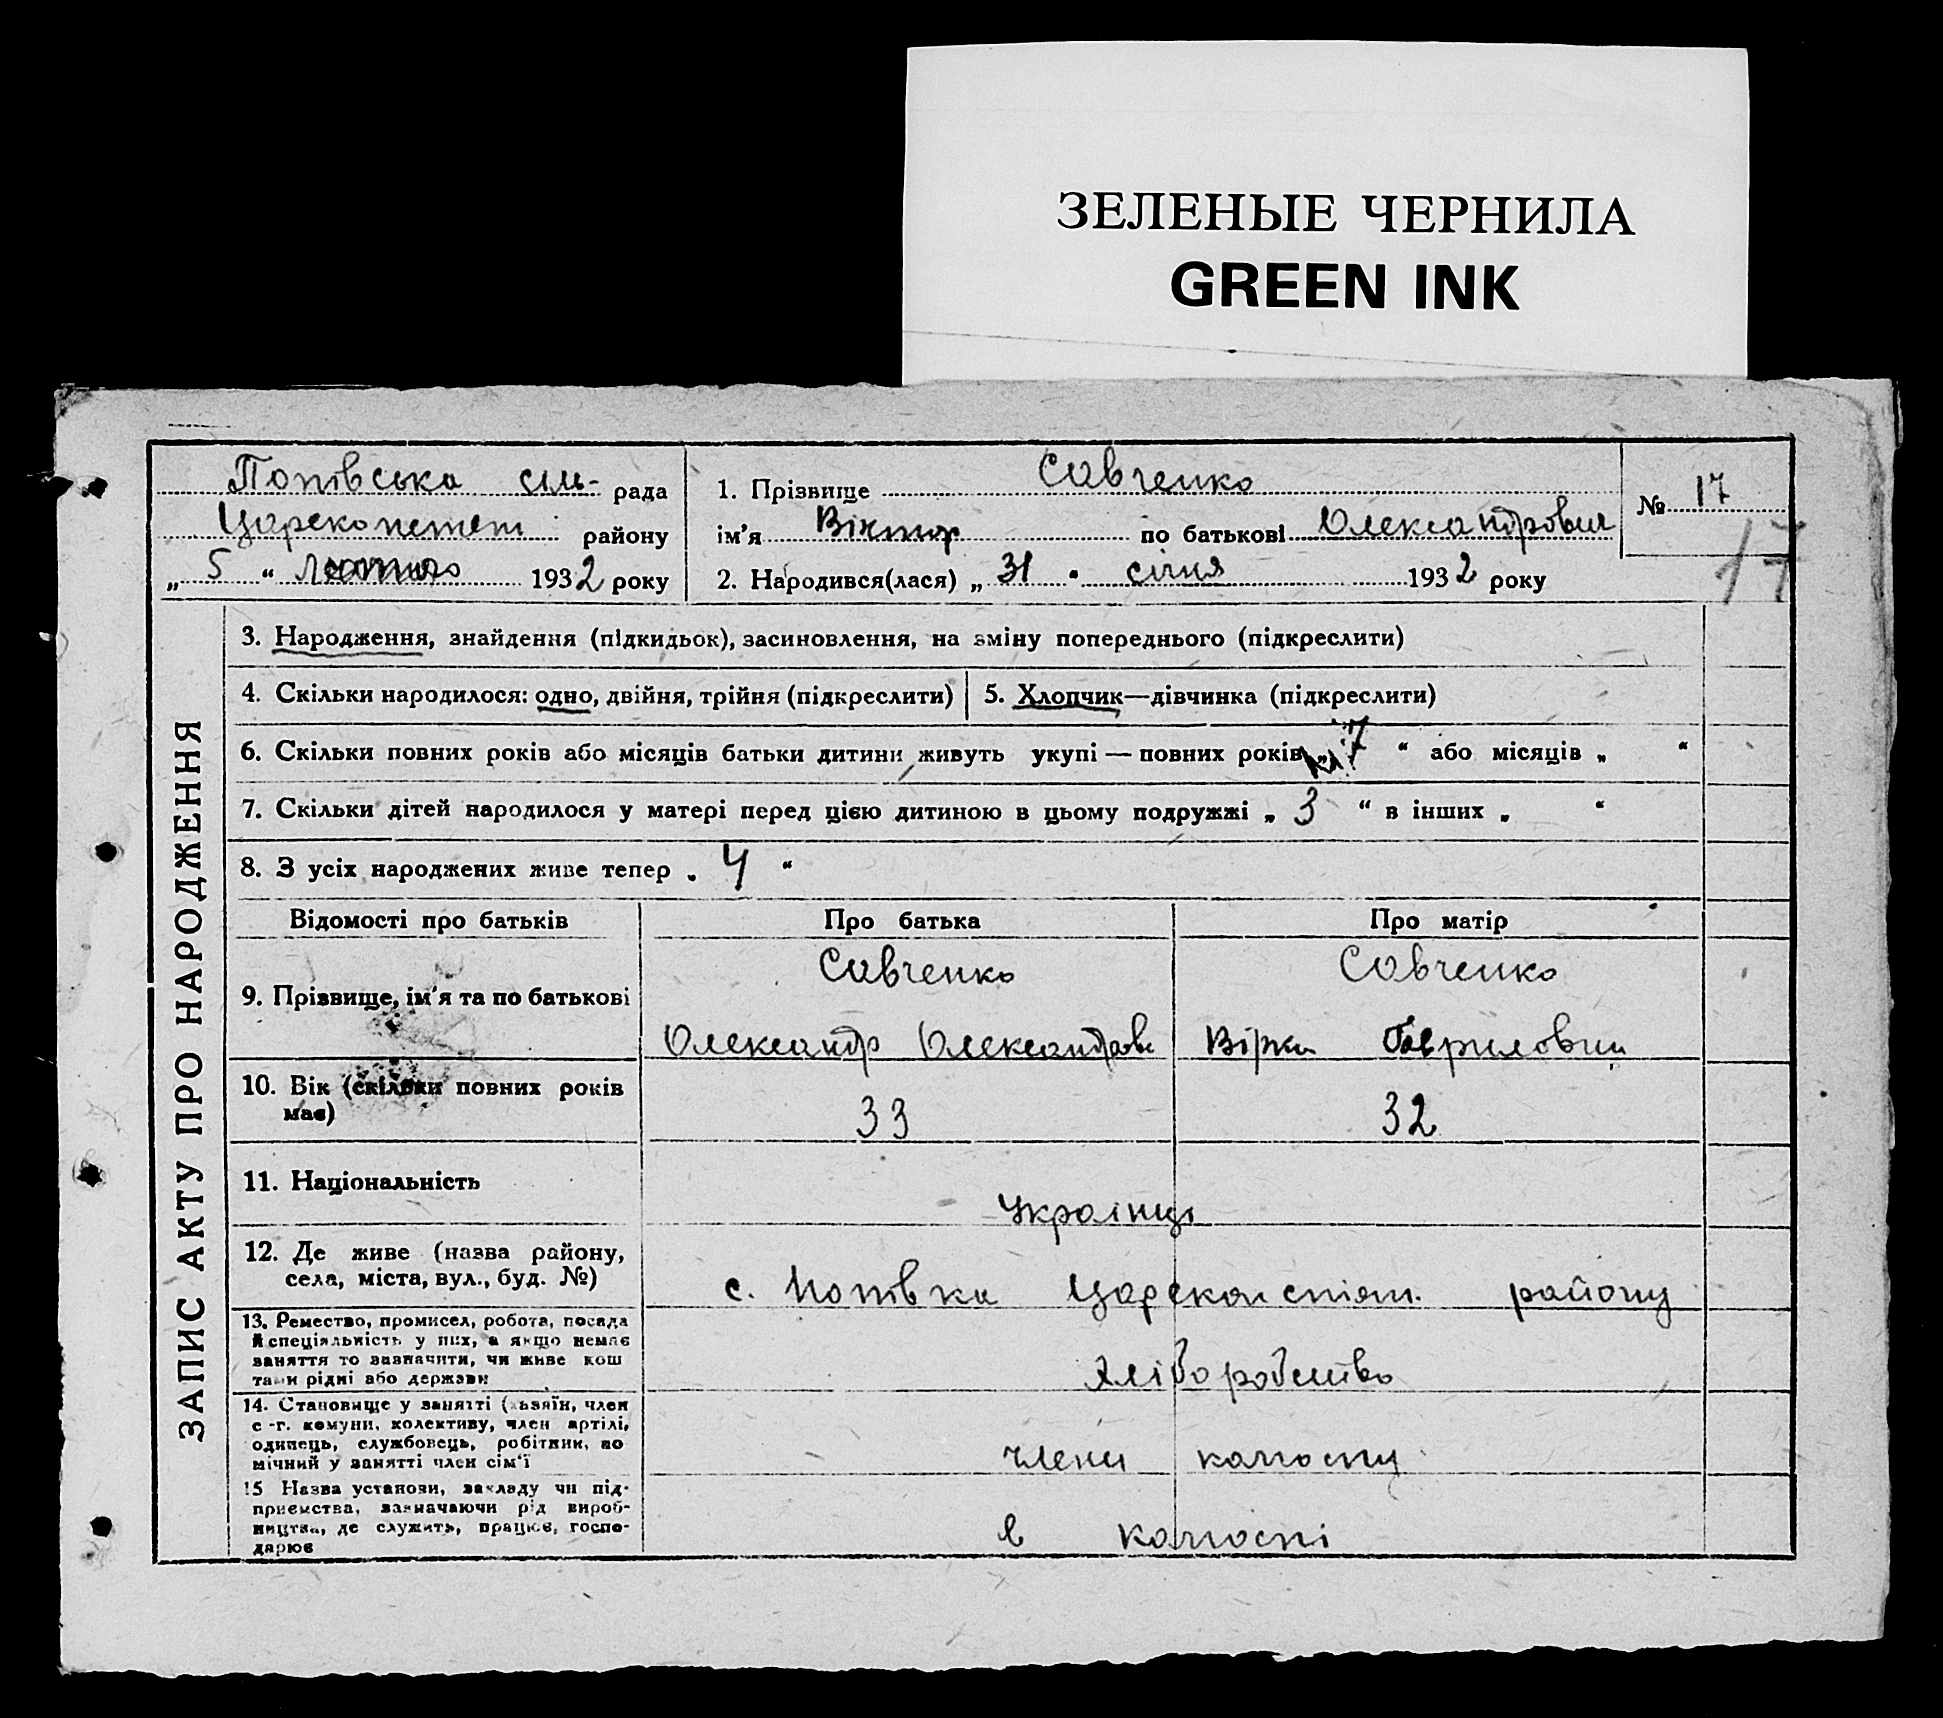 ЗЕЛЕНЫЕ ЧЕРНИЛА
GREEN INK
Попівська сіль- рада
району
„ 5 “ Лютого 1932 року
1. Прізвище Савченко
ім'я Віктор по батькові Олександрович
2. Народився(лася) „ 31 " січня 1932 року
№ 17
17
ЗАПИС АКТУ ПРО НАРОДЖЕННЯ
3. Народження, знайдення (підкидьок), засиновлення, на зміну попереднього (підкреслити)
4. Скільки народилося: одно, двійня, трійня (підкреслити)
5. Хлопчик—дівчинка (підкреслити)
6. Скільки повних років або місяців батьки дитини живуть укупі — повних років „ 7 “ або місяців „ “
7. Скільки дітей народилося у матері перед цією дитиною в цьому подружжі „ 3 “ в інших „ “
8. З усіх народжених живе тепер „ 4 “
Відомості про батьків Про батька Про матір
9. Прізвище, ім'я та по батькові
Савченко Савченко
Олександр Вірка
10. Вік (скільки повних років
має)
33 32
11. Національність
Українці
12. Де живе (назва району,
села, міста, вул., буд. №)
с. Попівка району
13. Ремество, промисел, робота, посада
й спеціяльність у них, а якщо немає
заняття то зазначити, чи живе кош
тами рідні або держави
Хліборобство
14. Становище у занятті (хазяїн, член
с-г. комуни, колективу, член артілі,
одинець, службовець, робітник, по
мічний у занятті член сім'ї
члени колгоспу
15 Назва установи, закладу чи під-
приємства, зазначаючи рід вироб-
ництва, де служить, працює, госпо-
дарює
в колгоспі